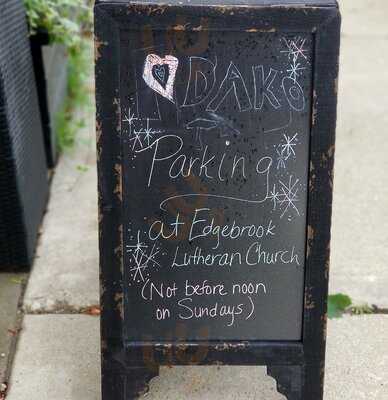 BAKO
Parking
at Edgebrook
Lutheran Church
(Not before noon
on Sundays)